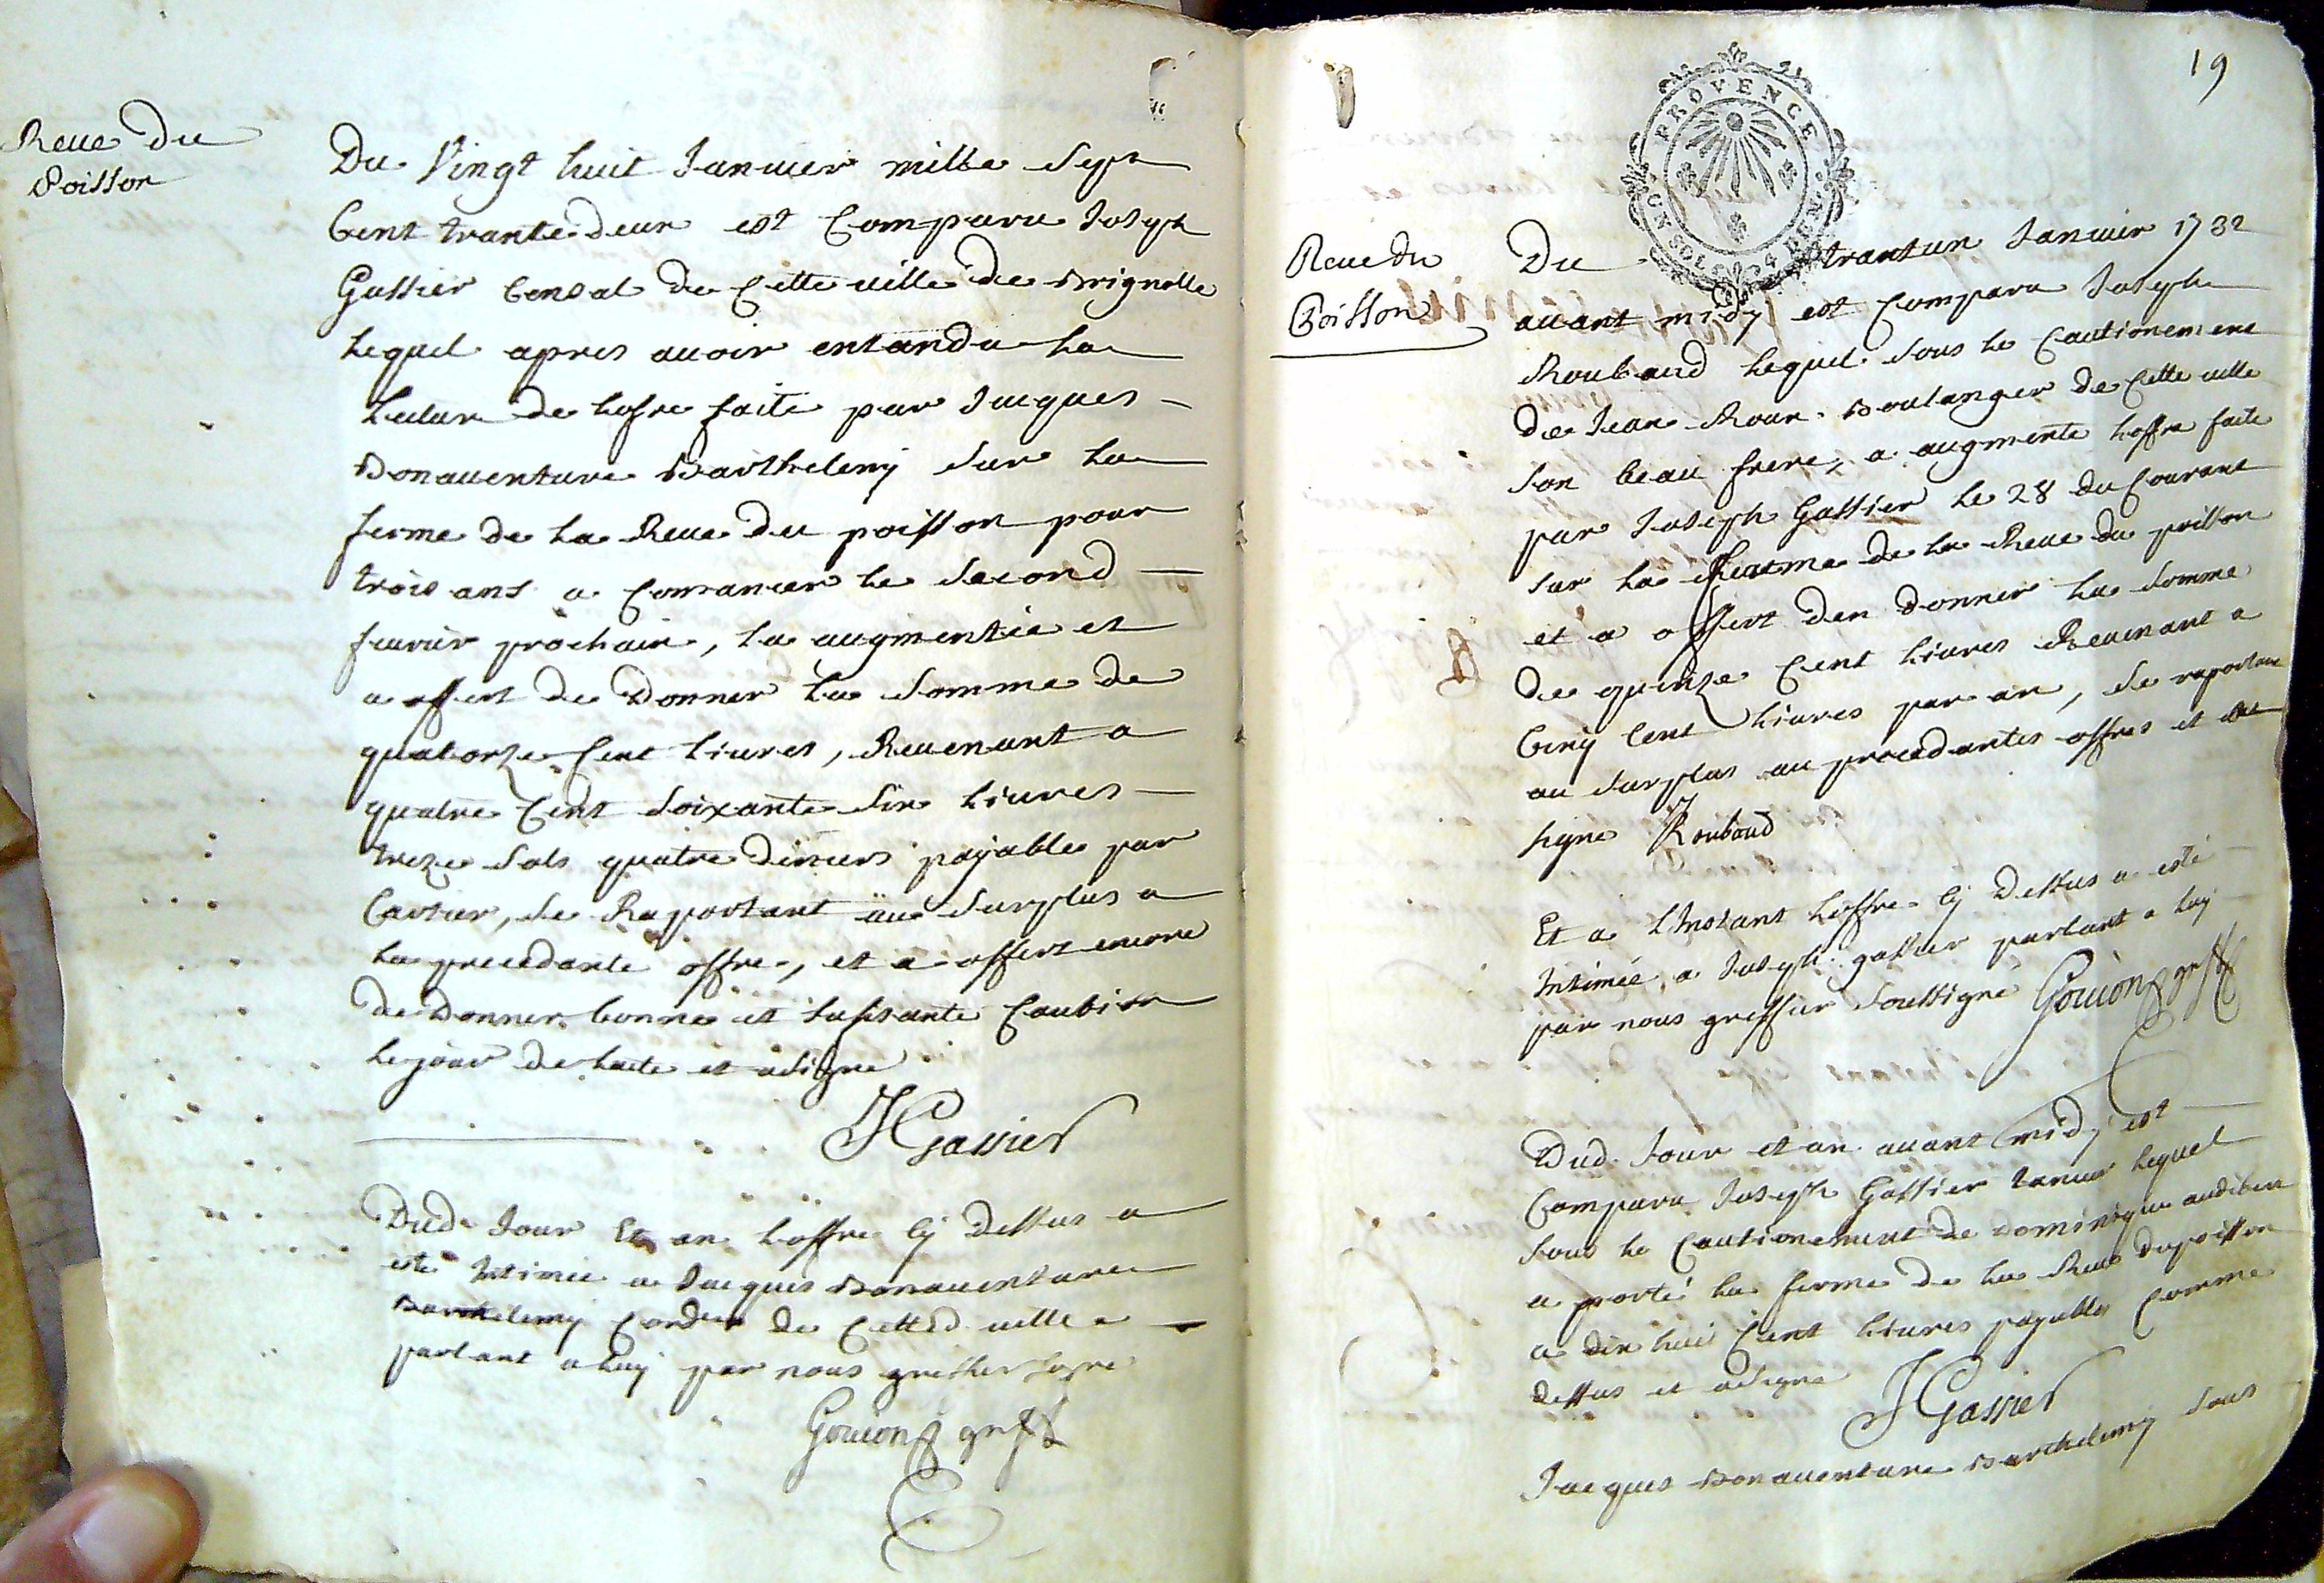 Reue du
Poisson
Du Vingt huit Januier mille Sept
Cent trante deux est Comparu Joseph
Gassier Censal de Cette uille de Brignolle
Lequel apres auoir entandu La
Lutur de Lofre faite par Jacques
Bonauenture Barthelemy Sur La
ferme de La Reue du poisson pour
trois ans a Comancer le Second
feurier prochain, La augmentée et
a offert de Donner La Somme de
quatorze Cent Liures, Reuenant a
quatre Cent Soixante Six Liures
treze Sols quatre deniers payables par
Cartier, Se Raportant au Surplus a
La precedante offre, et a offert encore
de Donner bonne et Sufisante Caution
le jour de Lacte et a Signe
J Gassier
Dud. Jour Et an Loffre Cy Dessus a
esté Intimée a Jacques Bonauenture
Barthelemy Cordier de Cetted. uille
parlant a Luy par nous greffier
Gouion greff
19
PROVENCE
Reue du
Poisson
Du trantun Januier 1732
auant midy est Comparu Joseph
Roubaud Lequel Sous Le Cautionement
de Jean Roux Boulanger de Cette uille
Son beau frere, a augmenté Loffre faite
par Joseph Gassier Le 28 du Courant
Sur La ferme de La Reue du poisson
et a offert den donner La Somme
de quinze Cent Liures Reuenant a
Cinq Cent Liures par an, Se raportant
au Surplus au precedantes offres et a
signe J Roubaud
Et a L'Instant Loffre Cy Dessus a esté
Intimée a Joseph gassier parlant a Luy
par nous greffier Soussigné Gouion greff
Dud. Jour et an auant midy est
Comparu Joseph Gassier Lequel
Sous Le Cautionement de Dominique audibert
a porté La ferme de La Reue du poisson
a dix huit Cent Liures payables Comme
dessus et a Signe
J Gassier
Jacques Bonauenture Barthelemy Sous